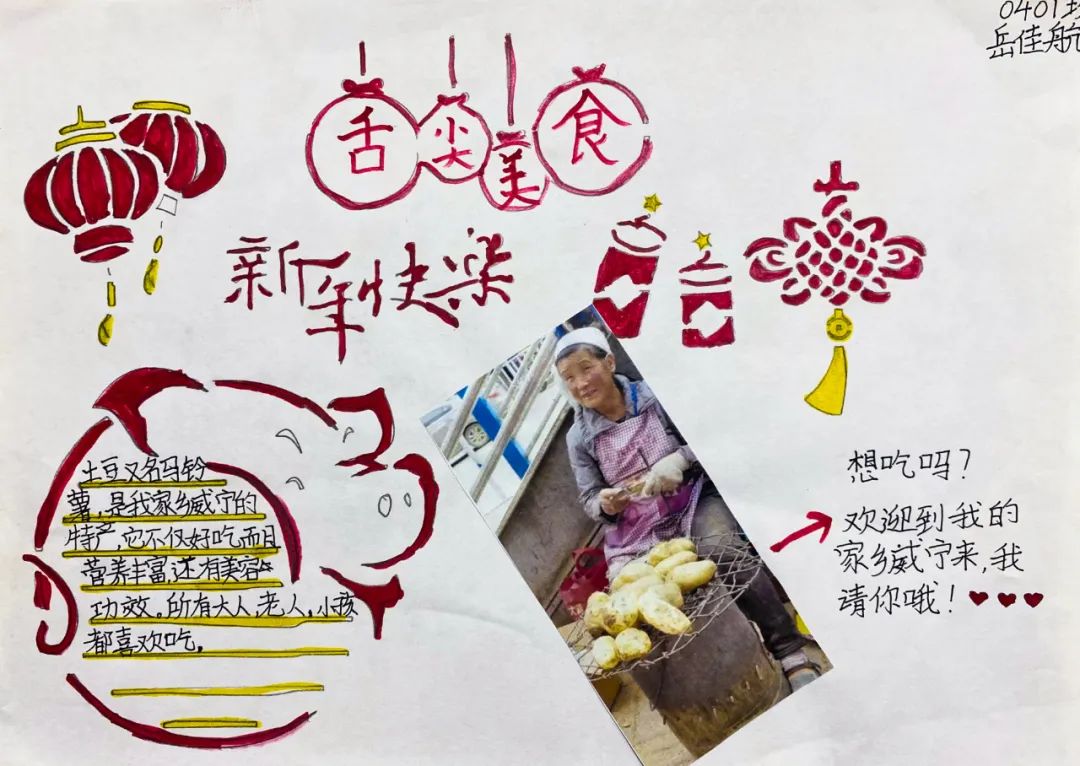 0401班
岳佳航
舌尖美食
新年快乐
土豆又名马铃
薯,是我家乡威宁的
特产,它不仅好吃而且
营养丰富,还有美容
功效。所有大人,老人,小孩
都喜欢吃,
想吃吗?
欢迎到我的
家乡威宁来,我
请你哦!